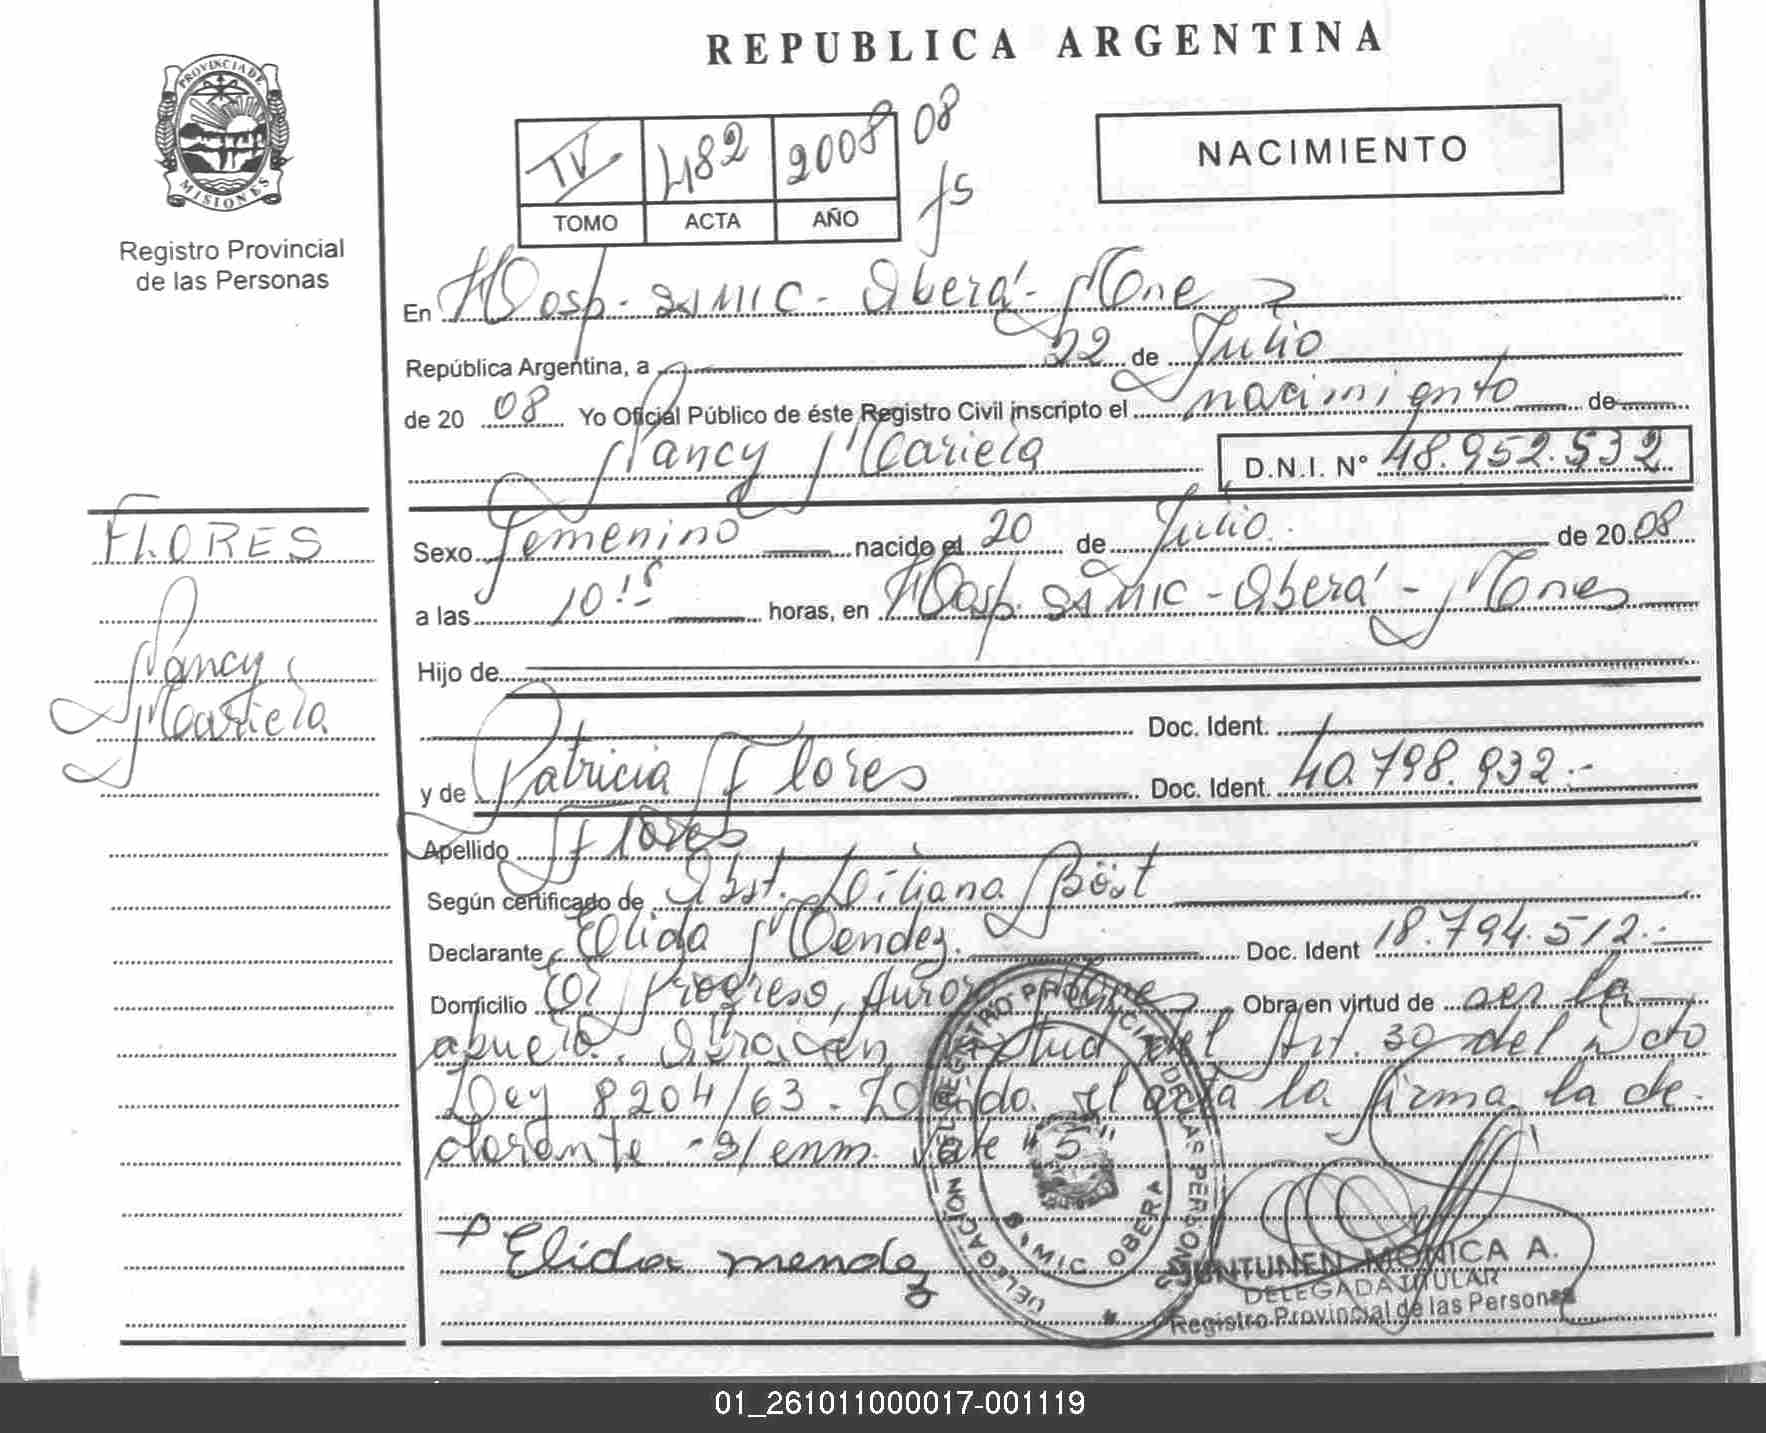 REPUBLICA ARGENTINA
PROVINCIA DE
MISIONES
Registro Provincial
de las Personas
IV 482 2008 08
TOMO ACTA AÑO
NACIMIENTO
En Hosp. SAMIC - Oberá - Mnes
República Argentina, a 22 de Julio
de 2008 Yo Oficial Público de éste Registro Civil inscripto el nacimiento de
Nancy Mariela D.N.I. N° 48.952.532
FLORES
Nancy
Mariela
Sexo Femenino nacido el 20 de Julio de 2008
a las 10:15 horas, en Hosp. SAMIC - Oberá - Mnes
Hijo de
Doc. Ident.
y de Patricia Flores Doc. Ident. 40.798.932.-
Apellido Flores
Según certificado de Obst. Liliana Böst
Declarante Elida Mendez. Doc. Ident 18.794.512.-
Domicilio Col Progreso, Aurora, Mnes Obra en virtud de ser la
abuela. en virtud del Art. 30 del Dcto
Ley 8204/63. Leída el acta la firma la de-
clarante - S/enm. Vale "5"
Elida mendez
DELEGACION DEL REGISTRO PROVINCIAL DE LAS PERSONAS
SAMIC OBERA
JUNTUNEN MONICA A.
DELEGADA TITULAR
Registro Provincial de las Personas
01_261011000017-001119